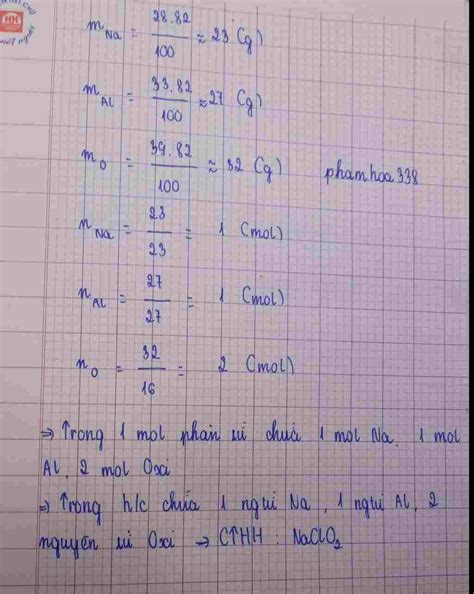 m Na = 28.82 / 100 ≈ 23 (g)
m Al = 33.82 / 100 ≈ 27 (g)
m O = 39.82 / 100 ≈ 32 (g) phamhoa338
n Na = 23 / 23 = 1 (mol)
n Al = 27 / 27 = 1 (mol)
n O = 32 / 16 = 2 (mol)
⇒ Trong 1 mol phân tử chứa 1 mol Na, 1 mol
Al, 2 mol Oxi
⇒ Trong h/c chứa 1 ngtử Na, 1 ngtử Al, 2
nguyên tử Oxi → CTHH : NaClO₂